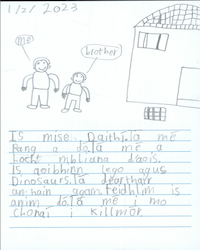 1/2/2023
me
brother
Is mise Daithí. Tá mé
Rang a dó. Tá mé a
hocht mbliana d'aois.
Is aoibhinn lego agus
Dinosaurs. Tá deartháir
amháin agam. Feidhlim is
anim dó. Tá mé i mo
Chónaí i Killmór.